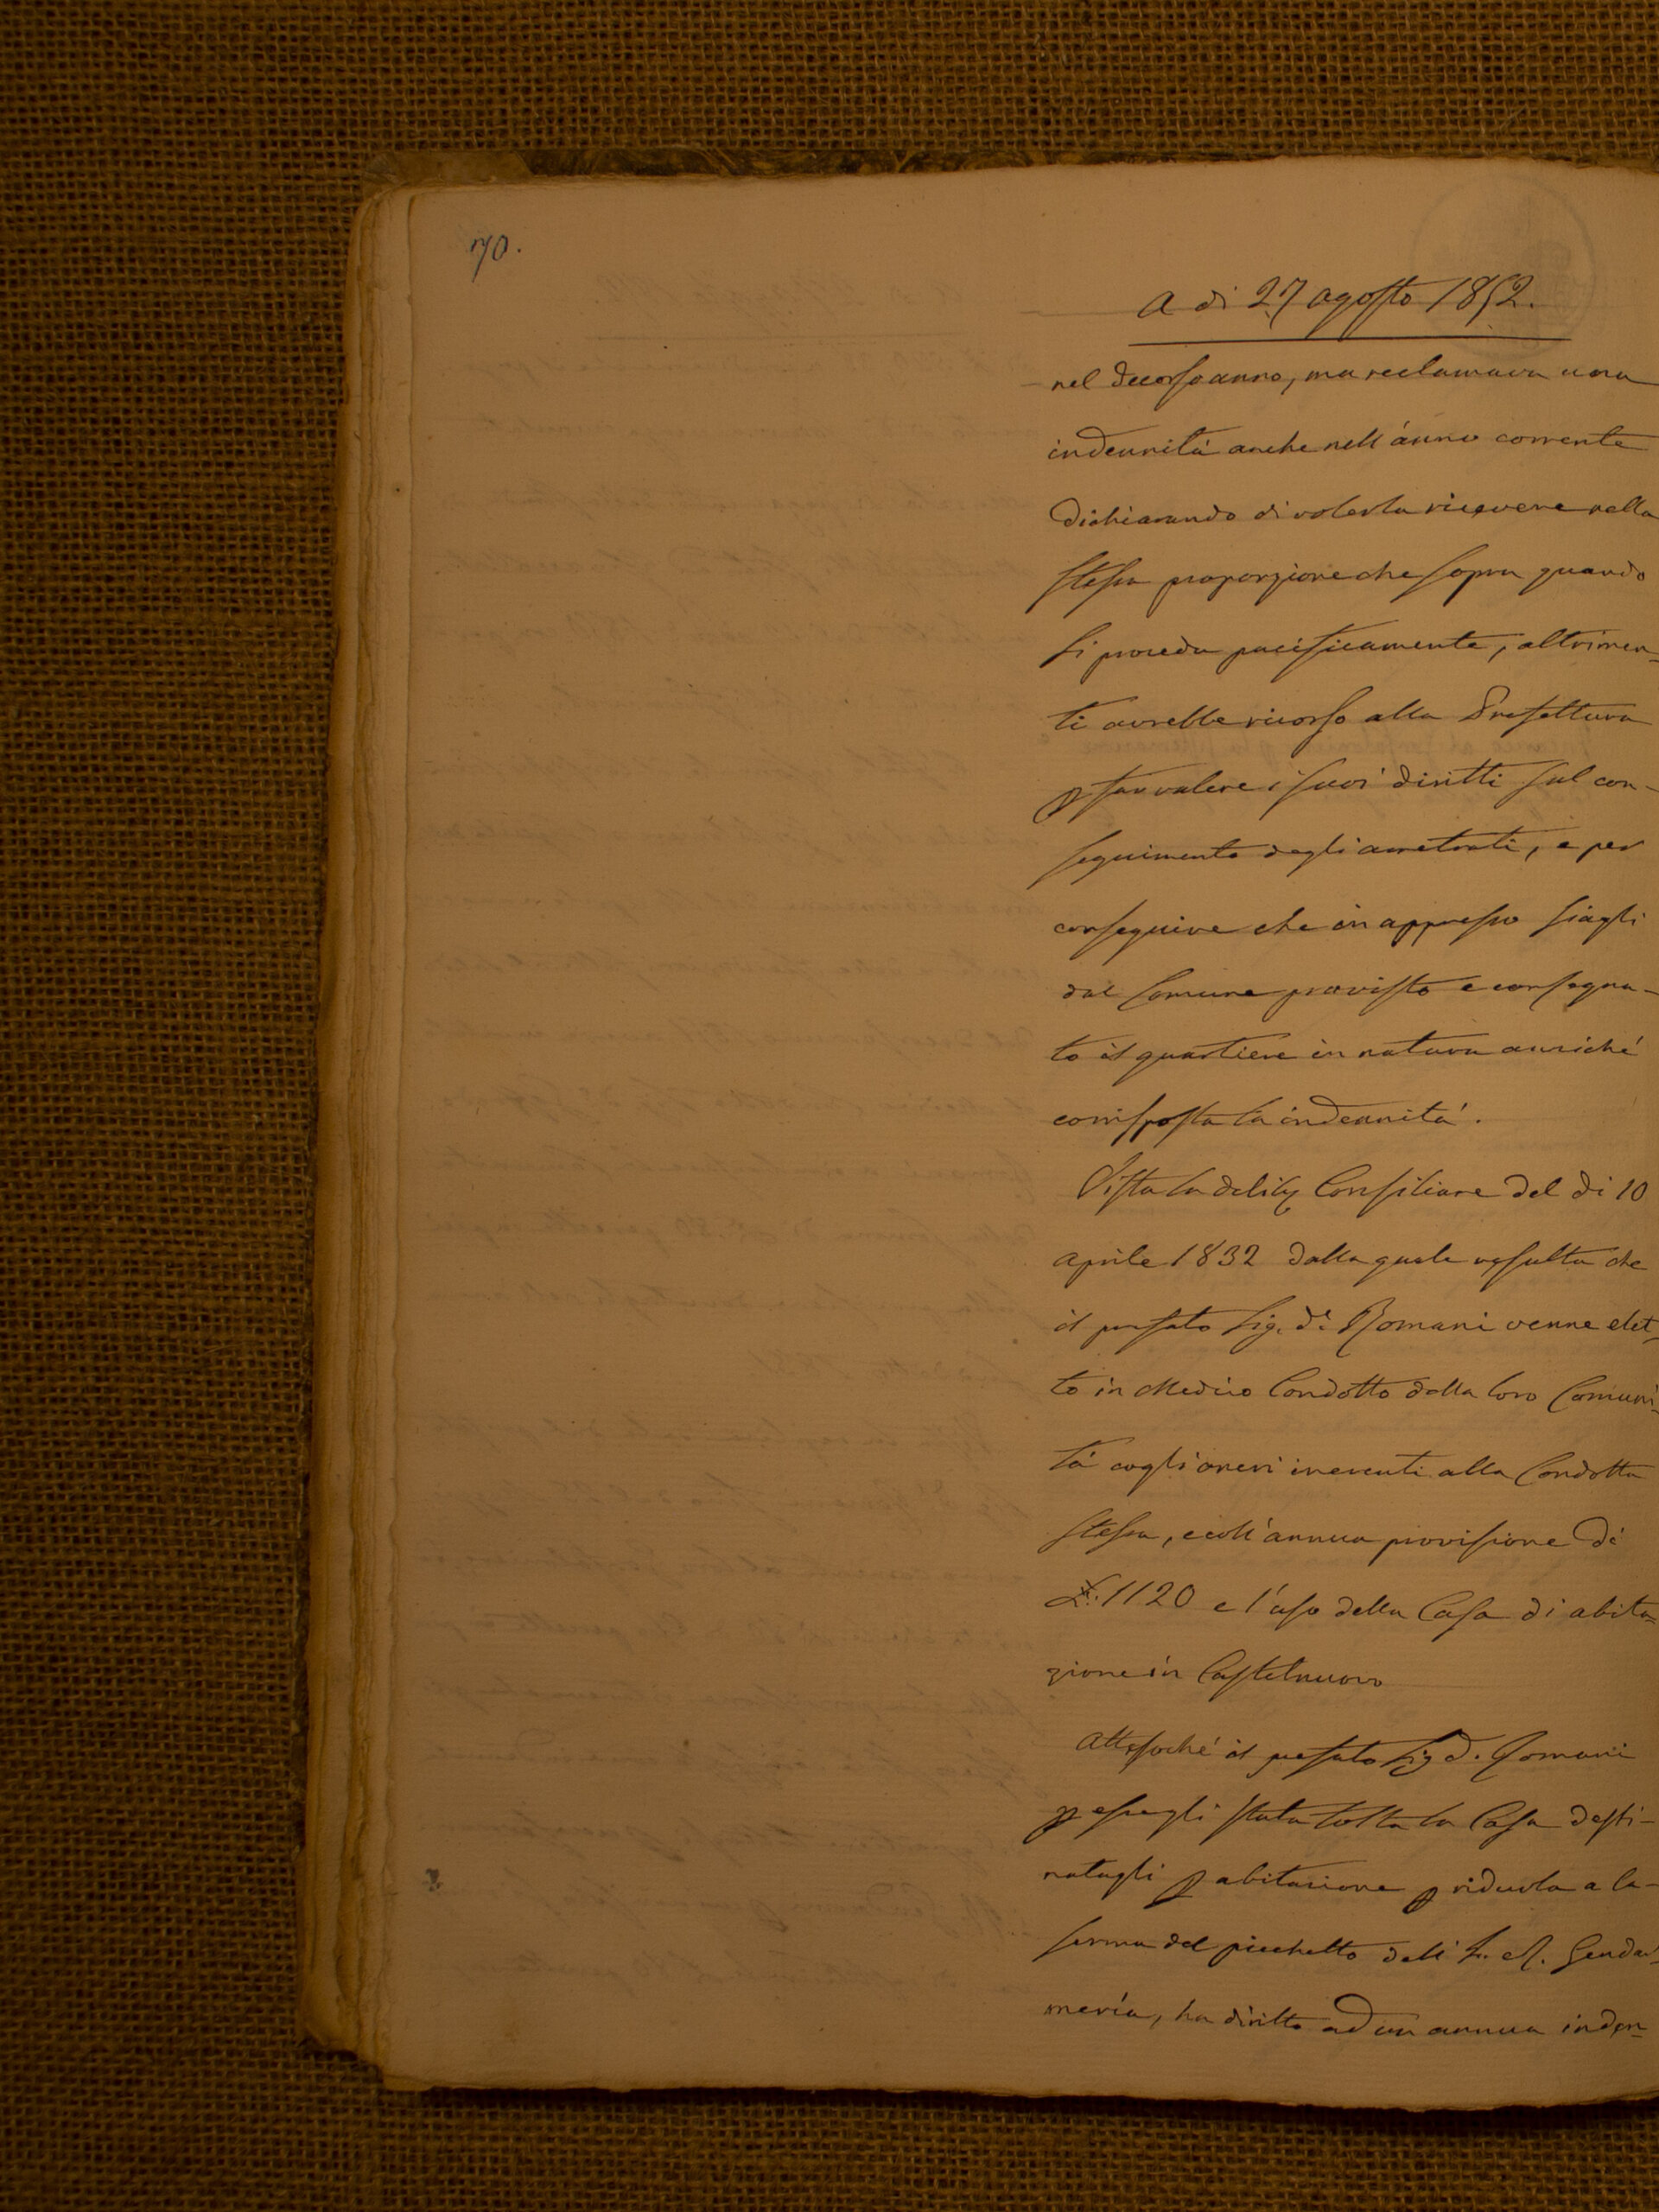 70.
A di 27 agosto 1852.
nel decorso anno, ma reclamava una
indennità anche nell'anno corrente
dichiarando di volerla ricevere nella
stessa proporzione che sopra quando
si proceda pacificamente, altrimen-
ti avrebbe ricorso alla Prefettura
p far valere i suoi diritti sul con-
seguimento degli arretrati, e per
conseguire che in appresso siagli
dal Comune provisto e consegna-
to il quartiere in natura anziché
corrisposta la indennità.
Vista la delib Consiliare del di 10
Aprile 1832 dalla quale resulta che
il prefato Sig. Dr. Romani venne elet-
to in Medico Condotto dalla loro Comuni-
tà cogli oneri inerenti alla Condotta
stessa, e coll'annua provisione di
£: 1120 e l'uso della Casa di abita=
zione in Castelnuovo
Attesoché il prefato Sig D. Romani
p essergli stata tolta la Casa desti-
natagli p abitazione p ridurla a Ca-
serma del picchetto dell'I. e R. Gendar-
meria, ha diritto ad un annua inden-